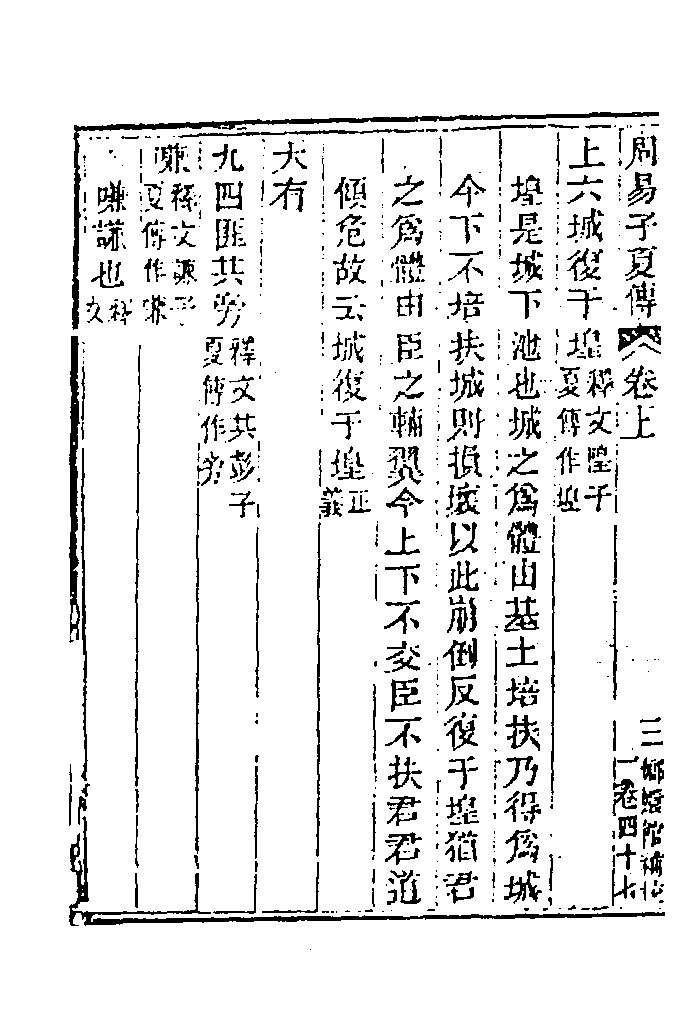 周易子夏傳 卷上 三 一卷四十七 嫏嬛館補校
上六城復于堭釋文隍子夏傳作堭
堭是城下池也城之爲體由基土培扶乃得爲城
今下不培扶城則損壞以此崩倒反復于堭猶君
之爲體由臣之輔翼今上下不交臣不扶君君道
傾危故云城復于堭正義
大有
九四匪其旁釋文其彭子夏傳作旁
嗛釋文謙子夏傳作嗛
嗛謙也釋文